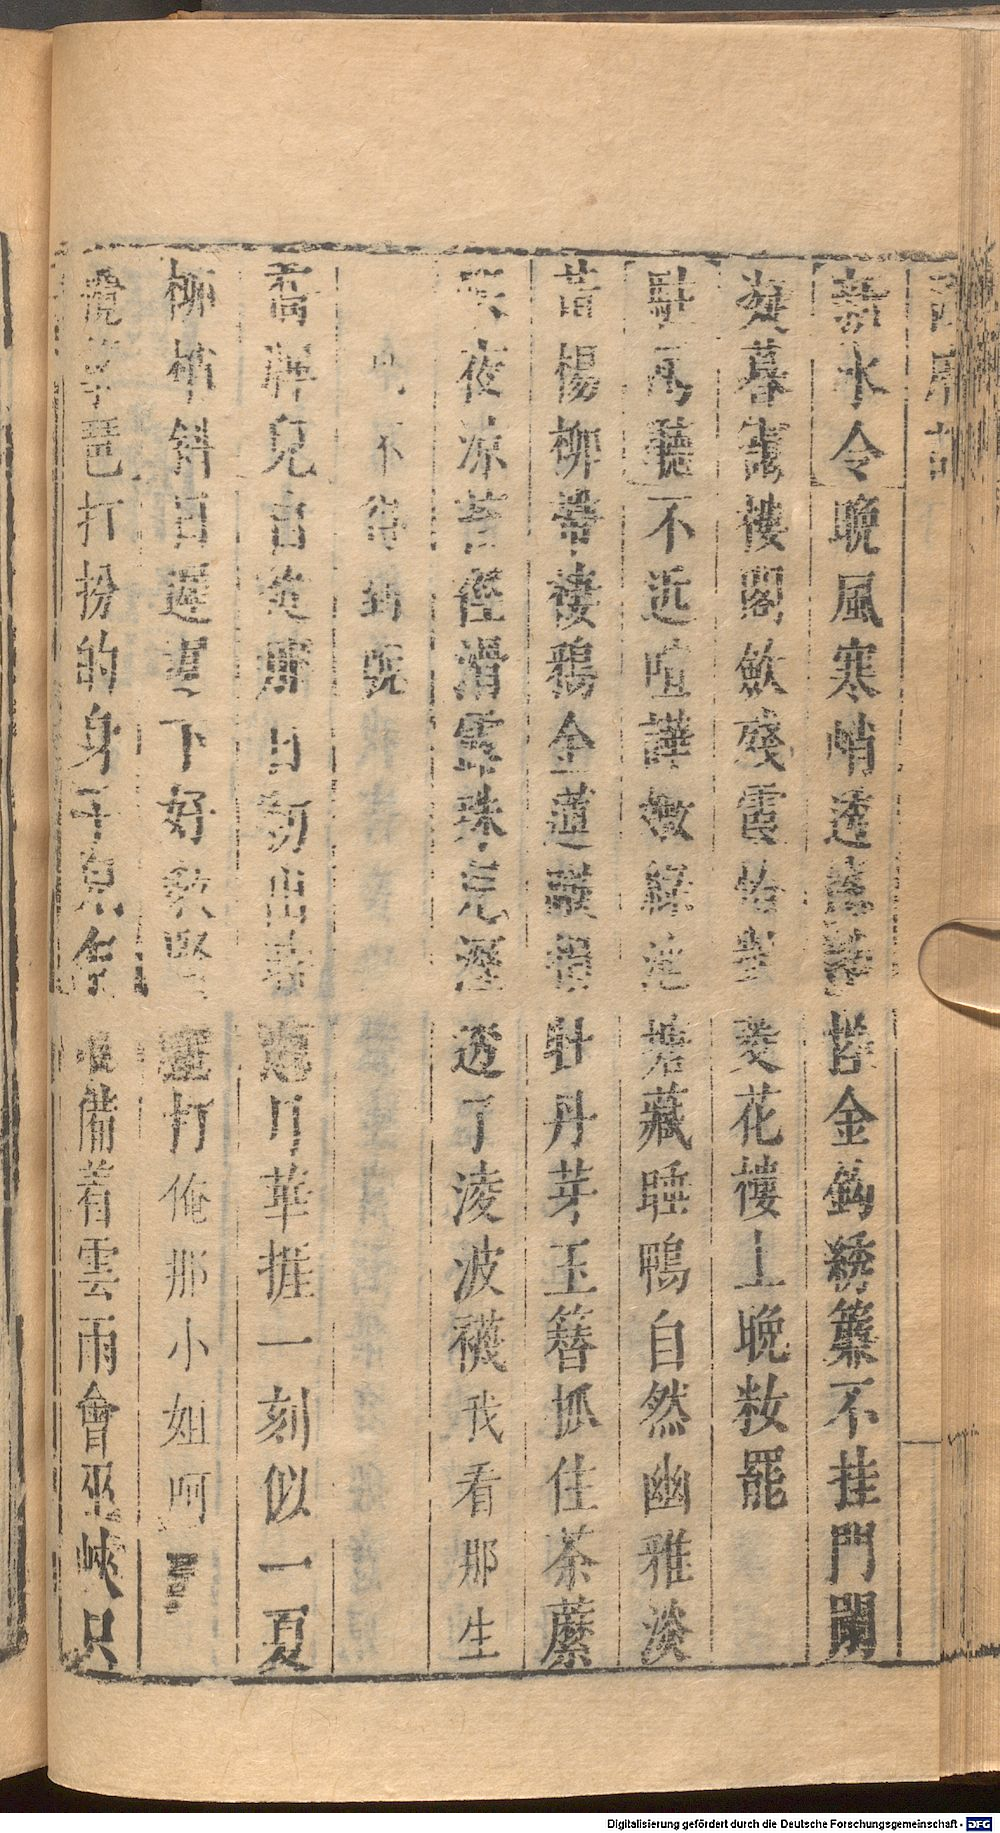 西廂記
新水令晚風寒峭透窓紗控金鈎綉簾不挂門闌
凝暮靄樓閣歛殘霞恰對菱花樓上晚粧罷
駐馬聽不近喧譁嫩綠池塘藏睡鴨自然幽雅淡
黃楊柳帶棲鴉金蓮蹴損牡丹芽玉簪抓住荼蘼
夜凉苔徑滑露珠兒濕透了凌波襪我看那生
不得到晚
喬牌兒自從那日初出時想月華捱一刻似一夏
柳梢斜日遲遲下好教賢聖打俺那小姐呵
打扮的身子兒 准備着雲雨會巫峽只
Digitalisierung gefördert durch die Deutsche Forschungsgemeinschaft - DFG